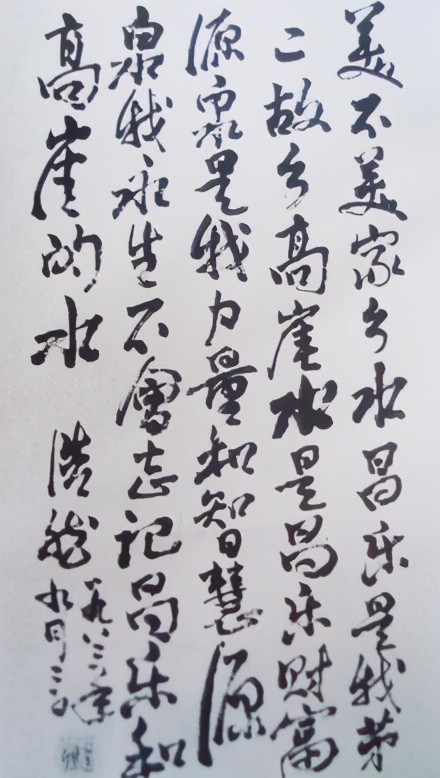 美不美家乡水昌乐是我第
二故乡高崖水是昌乐财富
源泉是我力量和智慧源
泉我永生不會忘记昌乐和
高崖的水 浩然
一九八 年
九月